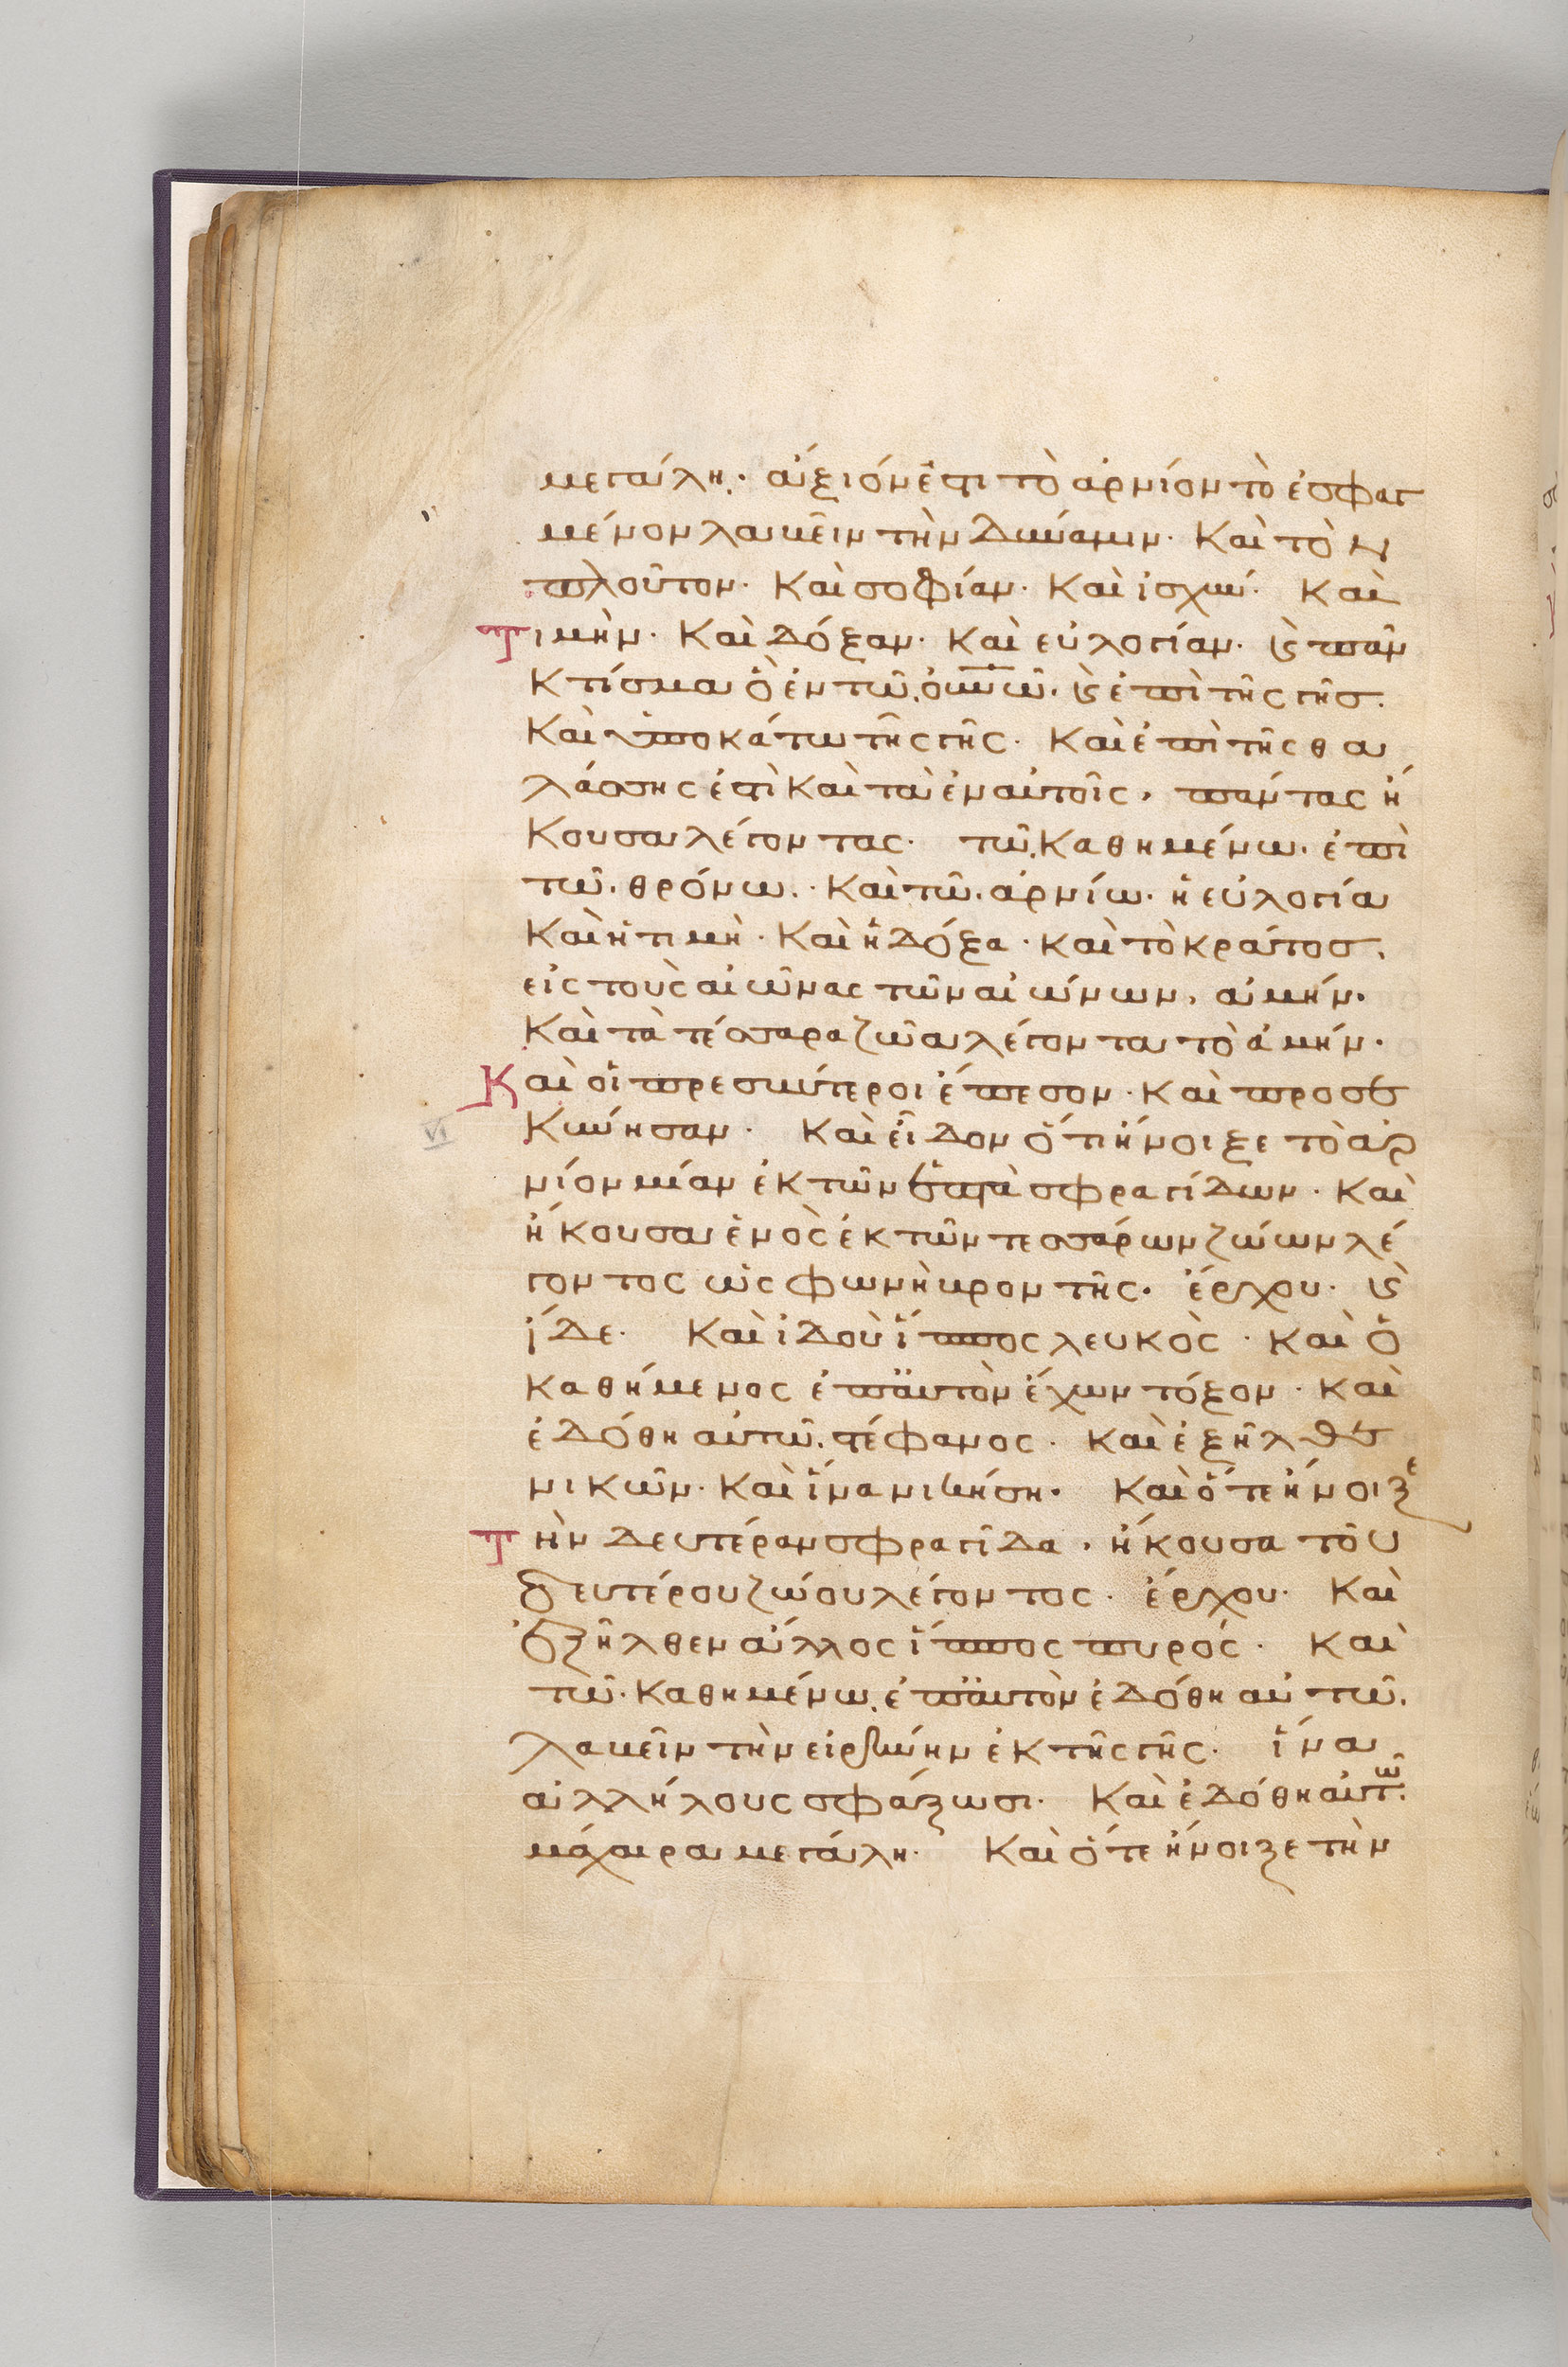 μεγάλη· ἄξιόν ἐστι τὸ ἀρνίον τὸ ἐσφαγ
μένον λαβεῖν τὴν δύναμιν· Καὶ τὸν
πλοῦτον· Καὶ σοφίαν· Καὶ ἰσχύν· Καὶ
Τιμὴν· Καὶ δόξαν· Καὶ εὐλογίαν· ϗ πᾶν
Κτίσμα ὃ ἐν τῶ οὐνῶ· ϗ ἐπὶ τῆς γῆς·
Καὶ ὑποκάτω τῆς γῆς· Καὶ ἐπὶ τῆς θα
λάσσης ἐστὶ Καὶ τὰ ἐν αὐτοῖς, πάντας ἤ
Κουσα λέγοντας· τῶ Καθημένω ἐπὶ
τῶ θρόνω· Καὶ τῶ ἀρνίω ἡ εὐλογία
Καὶ ἡ τιμὴ· Καὶ ἡ δόξα· Καὶ τὸ κράτος,
εἰς τοὺς αἰῶνας τῶν αἰώνων, ἀμήν·
Καὶ τὰ τέσσαρα ζῶα λέγοντα τὸ ἀμήν·
Καὶ οἱ πρεσβύτεροι ἔπεσον· Καὶ προσε
Κύνησαν· Καὶ εἶδον ὅτι ἤνοιξε τὸ ἀρ
νίον μίαν ἐκ τῶν ἑπτὰ σφραγίδων· Καὶ
ἤκουσα ἑνὸς ἐκ τῶν τεσσάρων ζώων λέ
γοντος ὡς φωνὴ βροντῆς· ἔρχου· ϗ
ἴδε· Καὶ ἰδοὺ ἵππος λευκὸς· Καὶ ὁ
Καθήμενος ἐπ' αὐτὸν ἔχων τόξον· Καὶ
ἐδόθη αὐτῶ στέφανος· Καὶ ἐξῆλθε
νικῶν· Καὶ ἵνα νικήση· Καὶ ὅτε ἤνοιξε
Τὴν δευτέραν σφραγῖδα, ἤκουσα τοῦ
δευτέρου ζώου λέγοντος· ἔρχου· Καὶ
ἐξῆλθεν ἄλλος ἵππος πυρός· Καὶ
τῶ Καθημένω ἐπ' αὐτὸν ἐδόθη αὐτῶ
λαβεῖν τὴν εἰρήνην ἐκ τῆς γῆς· ἵνα
ἀλλήλους σφάξωσι· Καὶ ἐδόθη αὐτῶ
μάχαιρα μεγάλη· Καὶ ὅτε ἤνοιξε τὴν